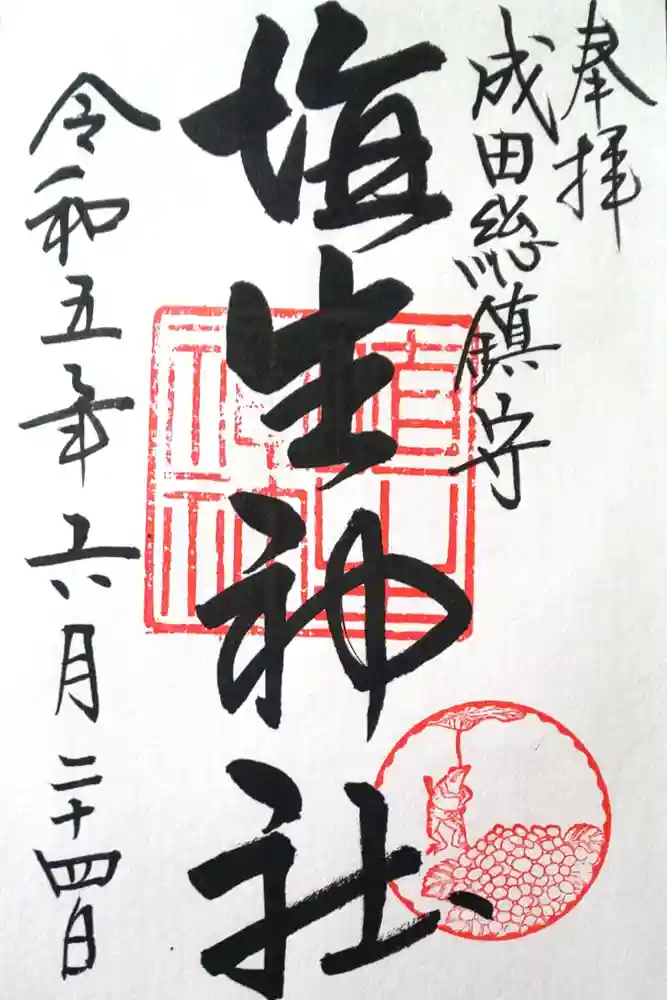 奉拝
成田総鎮守
埴生神社
令和五年六月二十四日